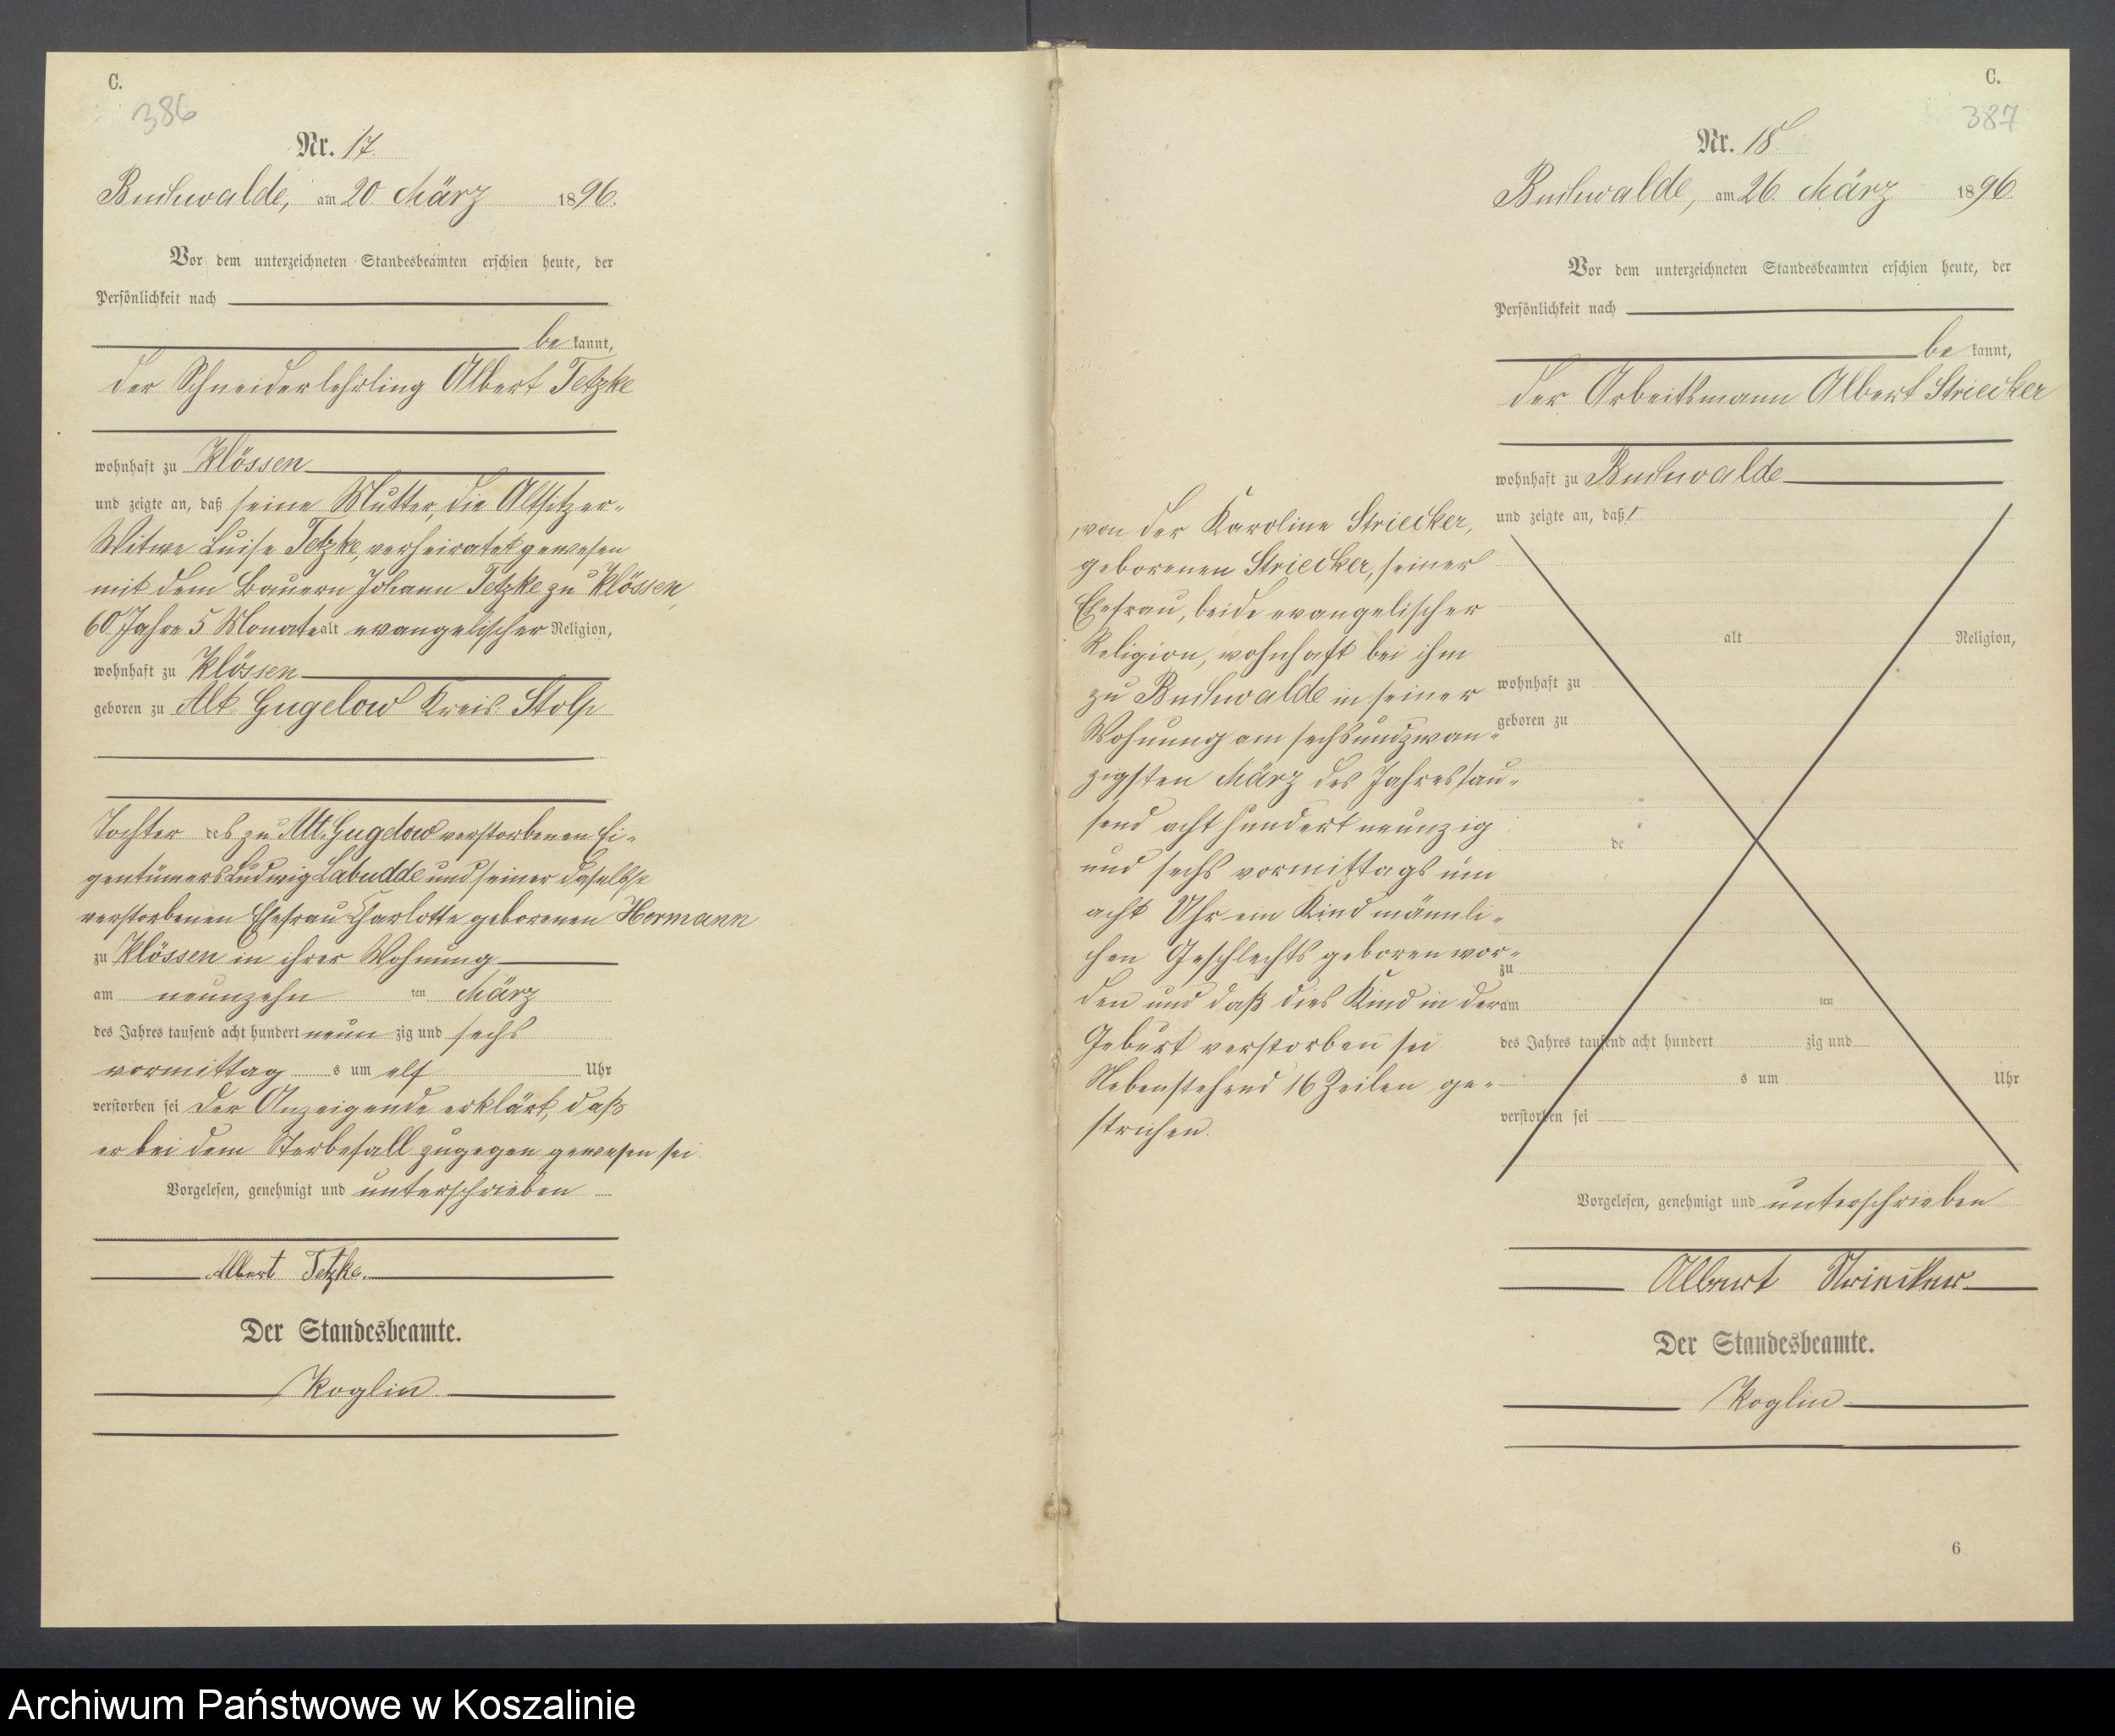 C.
386
Nr. 17.
Buchwalde, am 20. März 1896.
Vor dem unterzeichneten Standesbeamten erschien heute, der
Persönlichkeit nach
be kannt,
der Schneiderlehrling Albert Tetzke
wohnhaft zu Klössen
und zeigte an, daß seine Mutter, die Altsitzer-
Witwe Luise Tetzke, verheiratet gewesen
mit dem Bauern Johann Tetzke zu Klössen,
60 Jahre 5 Monate alt evangelischer Religion,
wohnhaft zu Klössen
geboren zu Alt Gugelow Kreis Stolp
Tochter des zu Alt Gugelow verstorbenen Ei-
gentümers Ludwig Labudde und seiner daselbst
verstorbenen Ehefrau Charlotte geborenen Hermann
zu Klössen in ihrer Wohnung
am neunzehn ten März
des Jahres tausend acht hundert neun zig und sechs
vormittag s um elf Uhr
verstorben sei Der Anzeigende erklärt, daß
er bei dem Sterbefall zugegen gewesen sei.
Vorgelesen, genehmigt und unterschrieben
Albert Tetzke.
Der Standesbeamte.
Koglin
C.
387
Nr. 18.
Buchwalde, am 26. März 1896.
Vor dem unterzeichneten Standesbeamten erschien heute, der
Persönlichkeit nach
be kannt,
der Arbeitsmann Albert Striecker
wohnhaft zu Buchwalde
und zeigte an, daß
von der Karoline Striecker,
geborenen Striecker, seiner
Ehefrau, beide evangelischer
Religion, wohnhaft bei ihm
zu Buchwalde in seiner
Wohnung am sechsundzwan-
zigsten März des Jahres tau-
send acht hundert neunzig
und sechs vormittags um
acht Uhr ein Kind männli-
chen Geschlechts geboren wor-
den und daß dies Kind in der
Geburt verstorben sei
Nebenstehend 16 Zeilen ge-
strichen.
alt Religion,
wohnhaft zu
geboren zu
de
zu
am ten
des Jahres tausend acht hundert zig und
s um Uhr
verstorben sei
Vorgelesen, genehmigt und unterschrieben
Albert Striecker
Der Standesbeamte.
Koglin
6
Archiwum Państwowe w Koszalinie